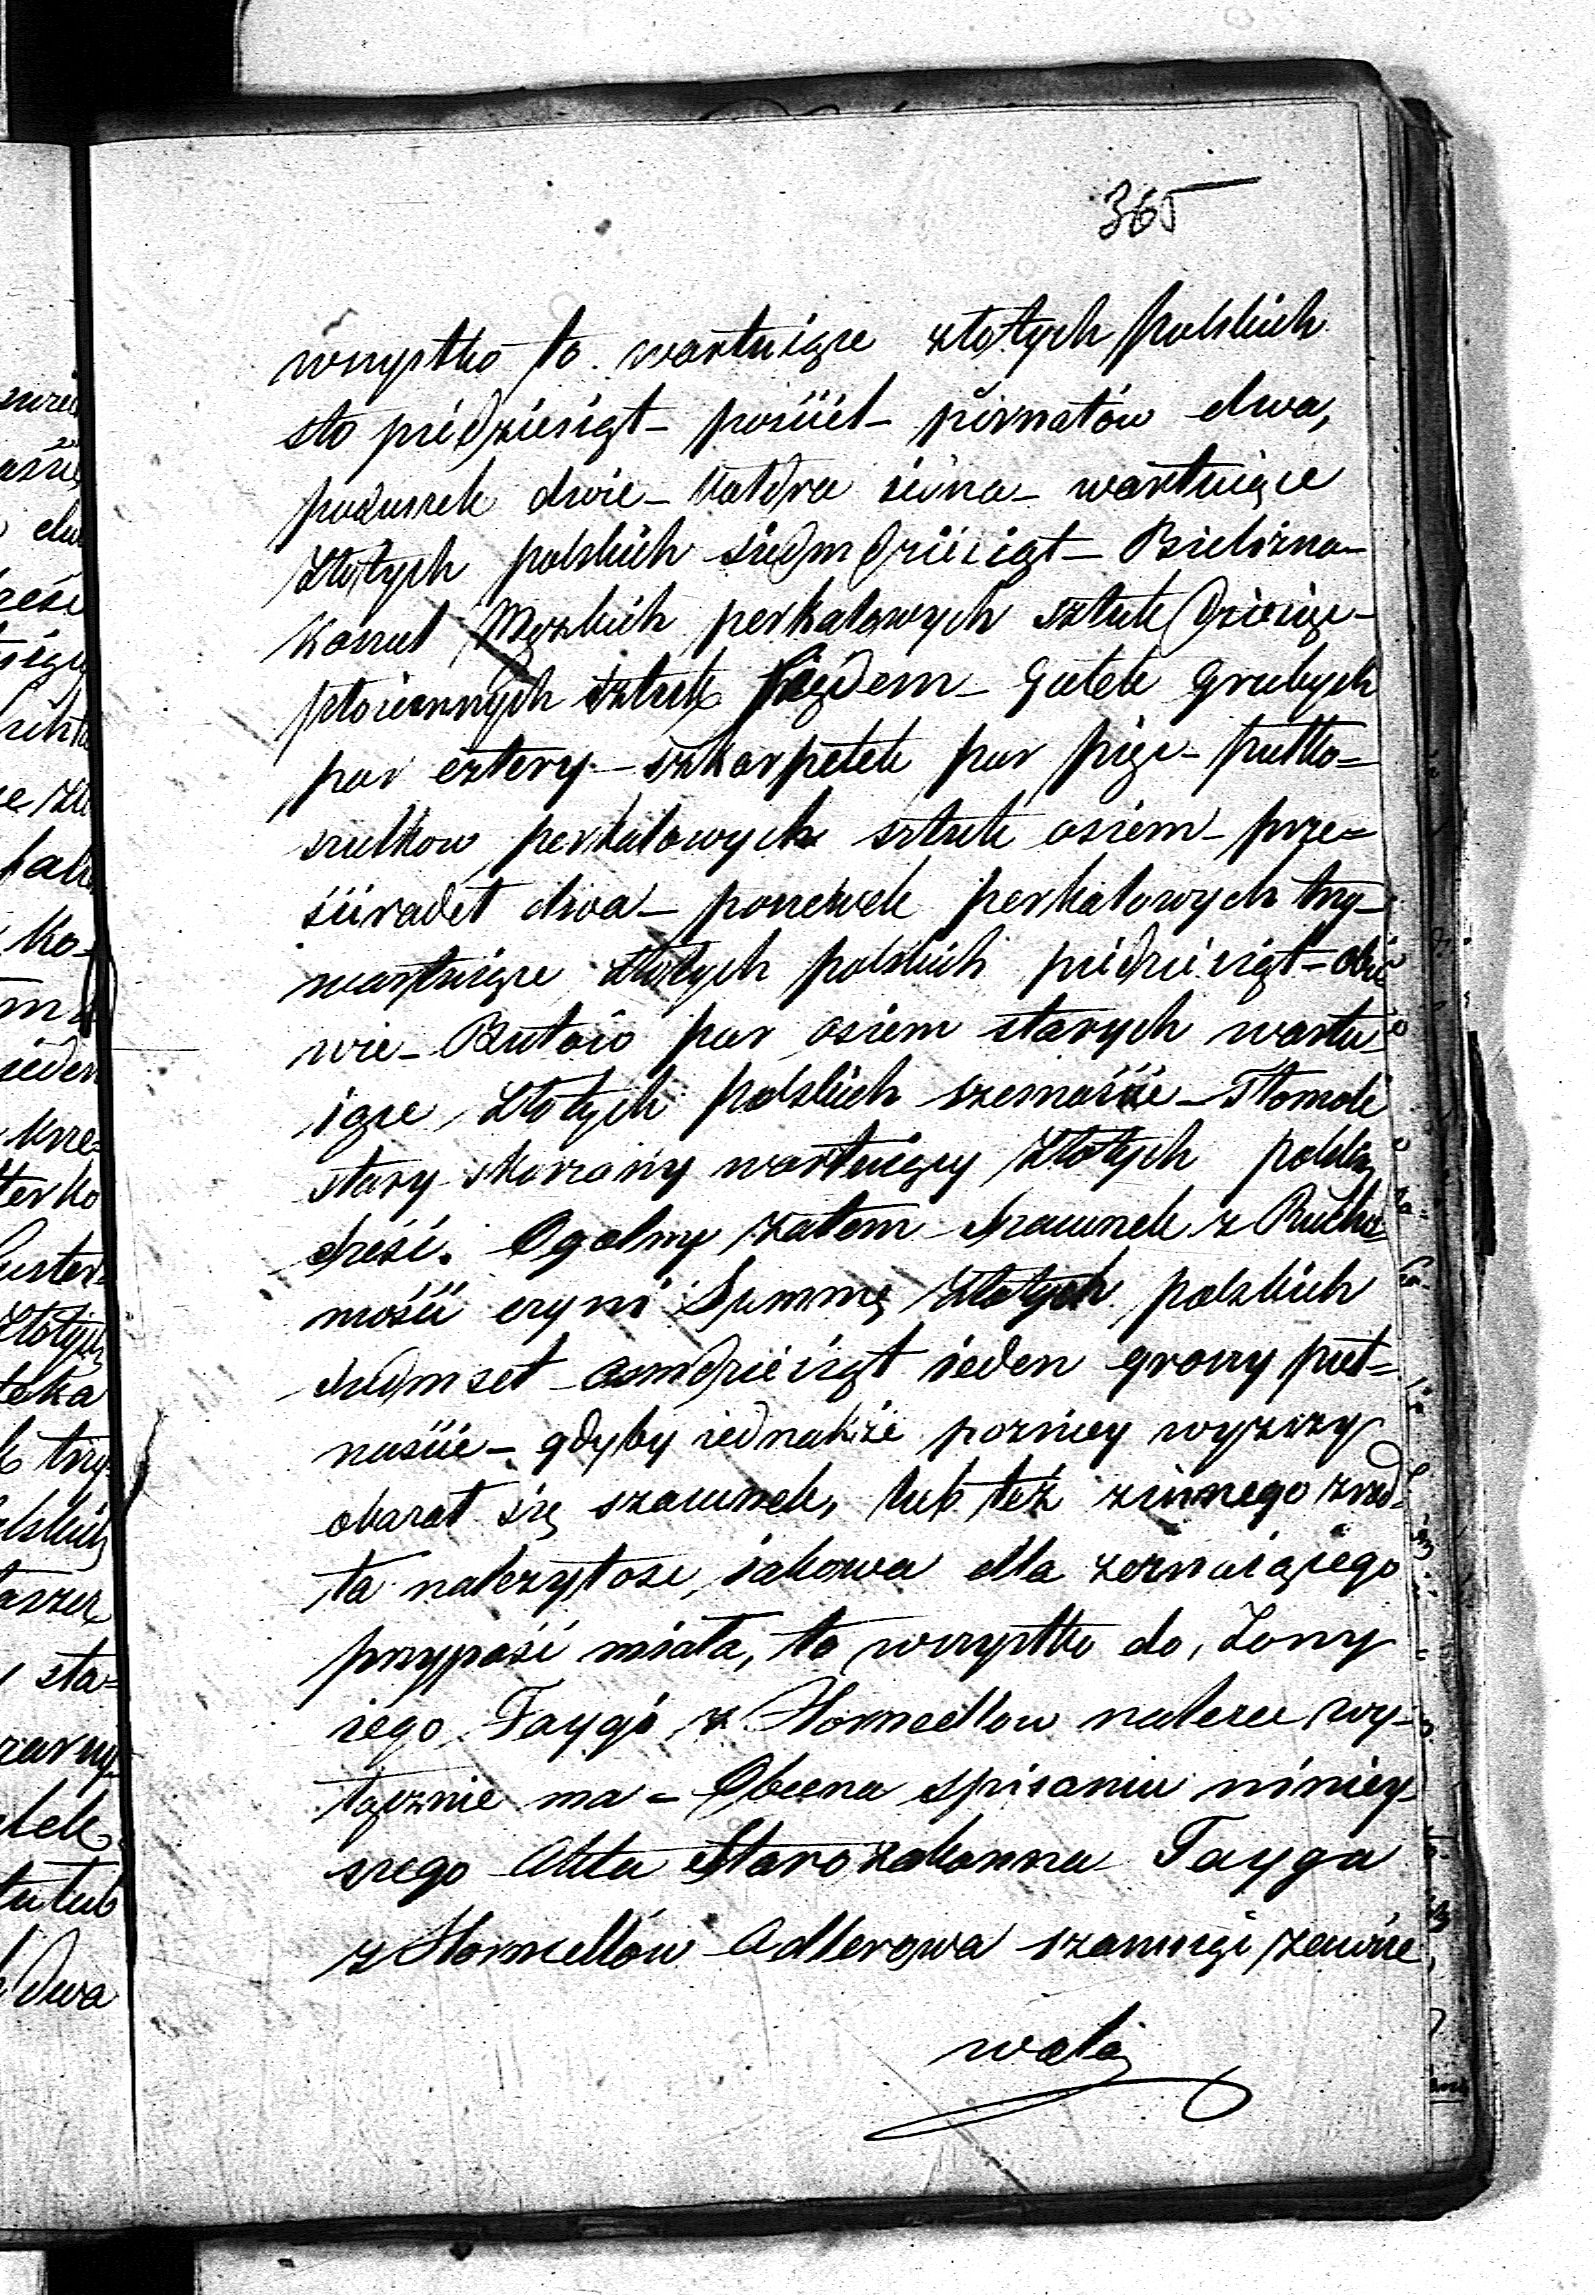 365
wszystko to wartuiące złotych polskich
sto piędziesiąt – pościel – piernatów dwa,
poduszek dwie – kołdra iedna – wartuiące
złotych polskich siedmdziesiąt – Bielizna –
koszul Męzkich perkalowych sztuk dziesięc –
płóciennych sztuk siedem – Gatek Grubych
par cztery – szkarpetek par pięc – pułko=
szulkow perkalowych sztuk osiem – prze=
ścieradeł dwa – poszewek perkalowych trzy –
wartuiące złotych polskich piędziesiąt – obu
wie – Butów par osiem starych wartu
iące złotych polskich szesnaście – Tłomok
stary skorzany wartuiący złotych polskich
sześć. Ogolny zatem szacunek z Rucho
mości czyni Summę złotych polskich
siedmset osmdziesiąt ieden groszy pięt=
naście – gdyby iednakże pozniey wyzszy
okazał się szacunek, lub też z innego zrzod
ła nalezytosc iakowa dla zeznaiącego
przypaść miała, to wszystko do Zony
iego Faygi z Hornedlow nalezec wy=
łącznie ma – Obecna spisaniu niniey
szego Aktu Starozakonna Fayga
z Hornedlów Adlerowa szanuiąc zawsze
wolą